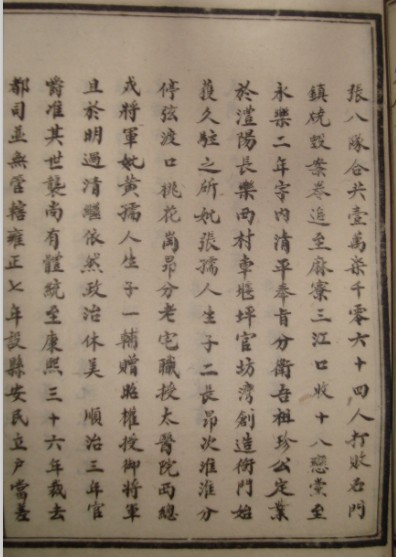 張八隊合共壹萬柒千零六十四人打敗石門
鎮硫毀案卷追至麻寮三江口收十八峒蛮至
永樂二年宇內清平奉旨分衛吾祖珍公定業
於澧陽長樂西村車堰坪官坊灣創造衙門始
獲久駐之所妣張孺人生子二長昂次淮淮分
停弦渡口桃花崗昂分老宅職授太醫院西總
戎將軍妣黃孺人生子一輔贈昭權授御將軍
且於明過清繼依然政治休美 順治三年官
爵准其世襲尚有體統至康熙三十六年裁去
都司並無管轄雍正七年設縣安民立戶當差